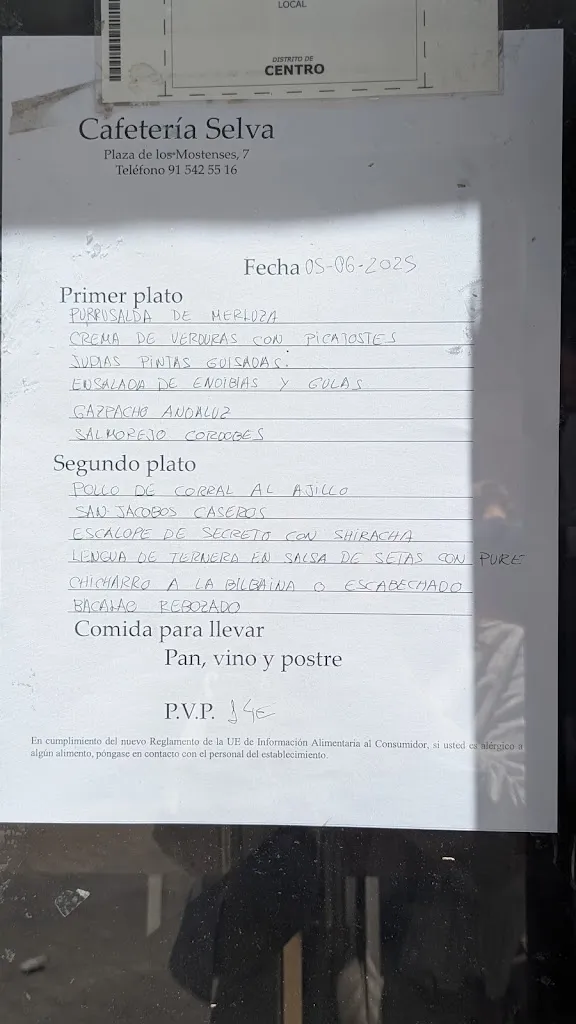 LOCAL
DISTRITO DE
CENTRO
Cafetería Selva
Plaza de los Mostenses, 7
Teléfono 91 542 55 16
Fecha 05-06-2025
Primer plato
PURRUSALDA DE MERLUZA
CREMA DE VERDURAS CON PICATOSTES
JUDIAS PINTAS GUISADAS.
ENSALADA DE ENDIBIAS Y GULAS
GAZPACHO ANDALUZ
SALMOREJO CORDOBES
Segundo plato
POLLO DE CORRAL AL AJILLO
SAN JACOBOS CASEROS
ESCALOPE DE SECRETO CON SHIRACHA
LENGUA DE TERNERA EN SALSA DE SETAS CON PURE
CHICHARRO A LA BILBAINA O ESCABECHADO
BACALAO REBOZADO
Comida para llevar
Pan, vino y postre
P.V.P. 14€
En cumplimiento del nuevo Reglamento de la UE de Información Alimentaria al Consumidor, si usted es alérgico a
algún alimento, póngase en contacto con el personal del establecimiento.